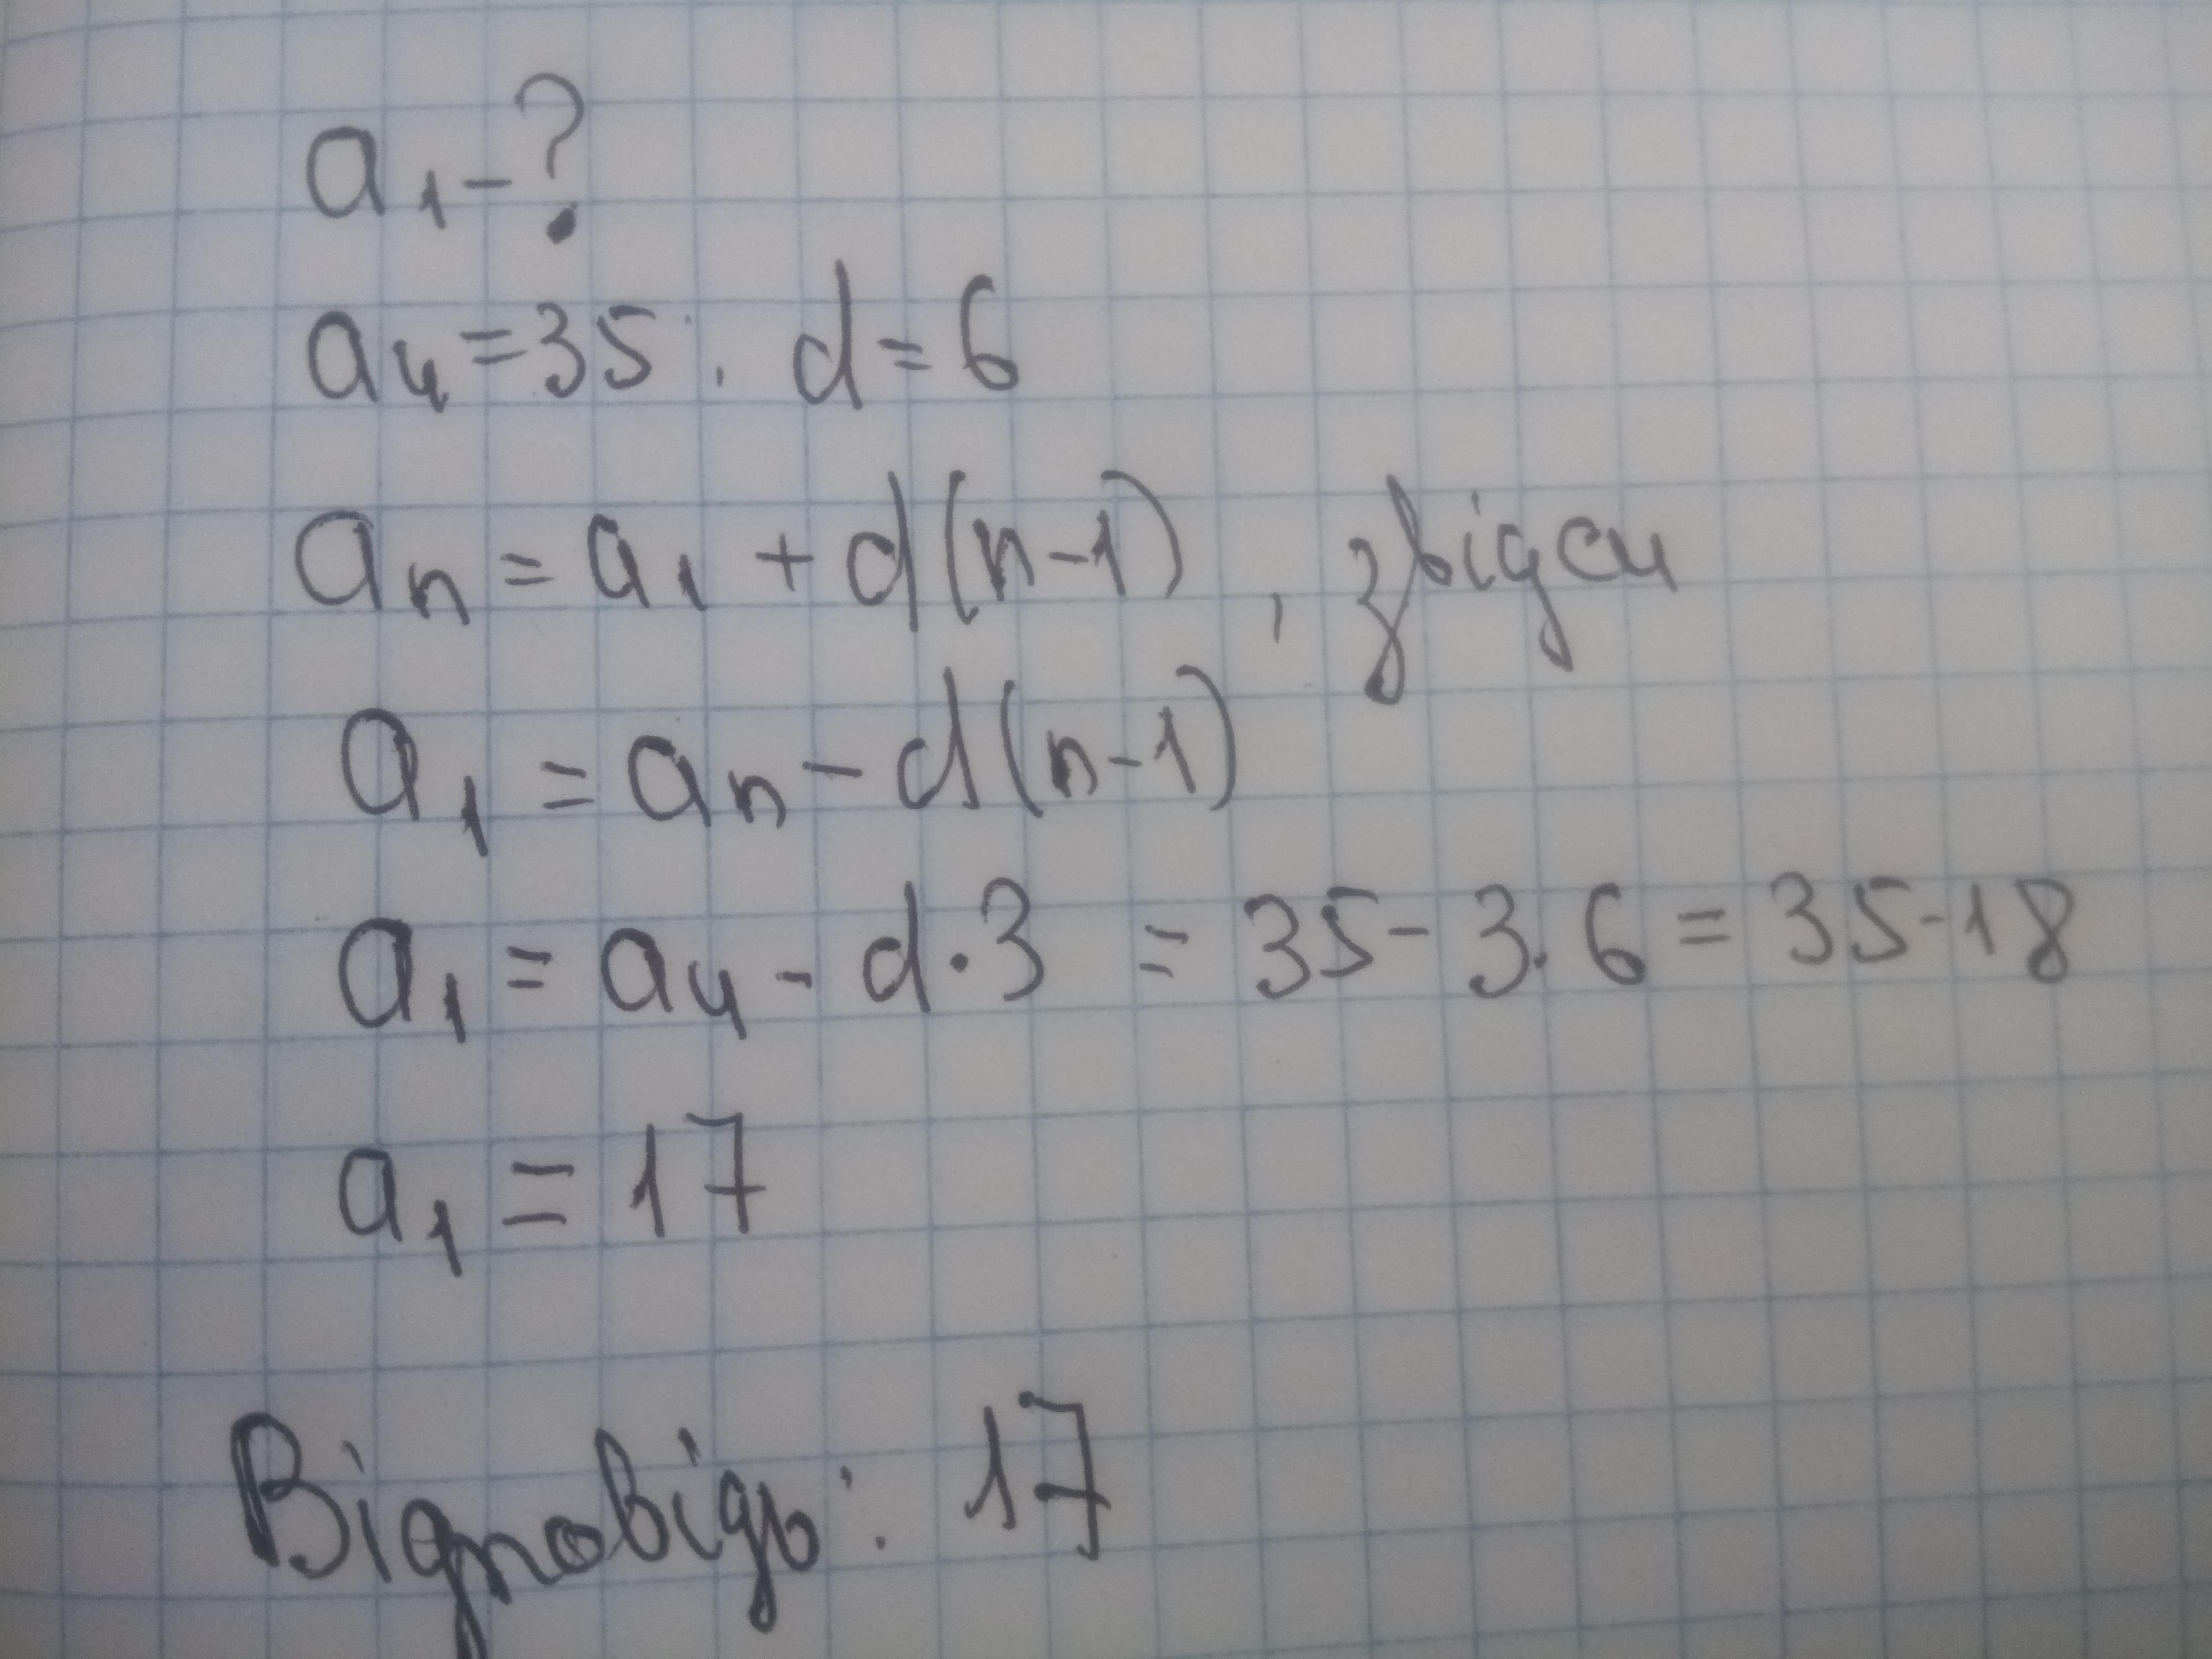 a₁ - ?
a₄ = 35; d = 6
aₙ = a₁ + d(n-1), звідси
a₁ = aₙ - d(n-1)
a₁ = a₄ - d·3 = 35 - 3·6 = 35-18
a₁ = 17
Відповідь: 17